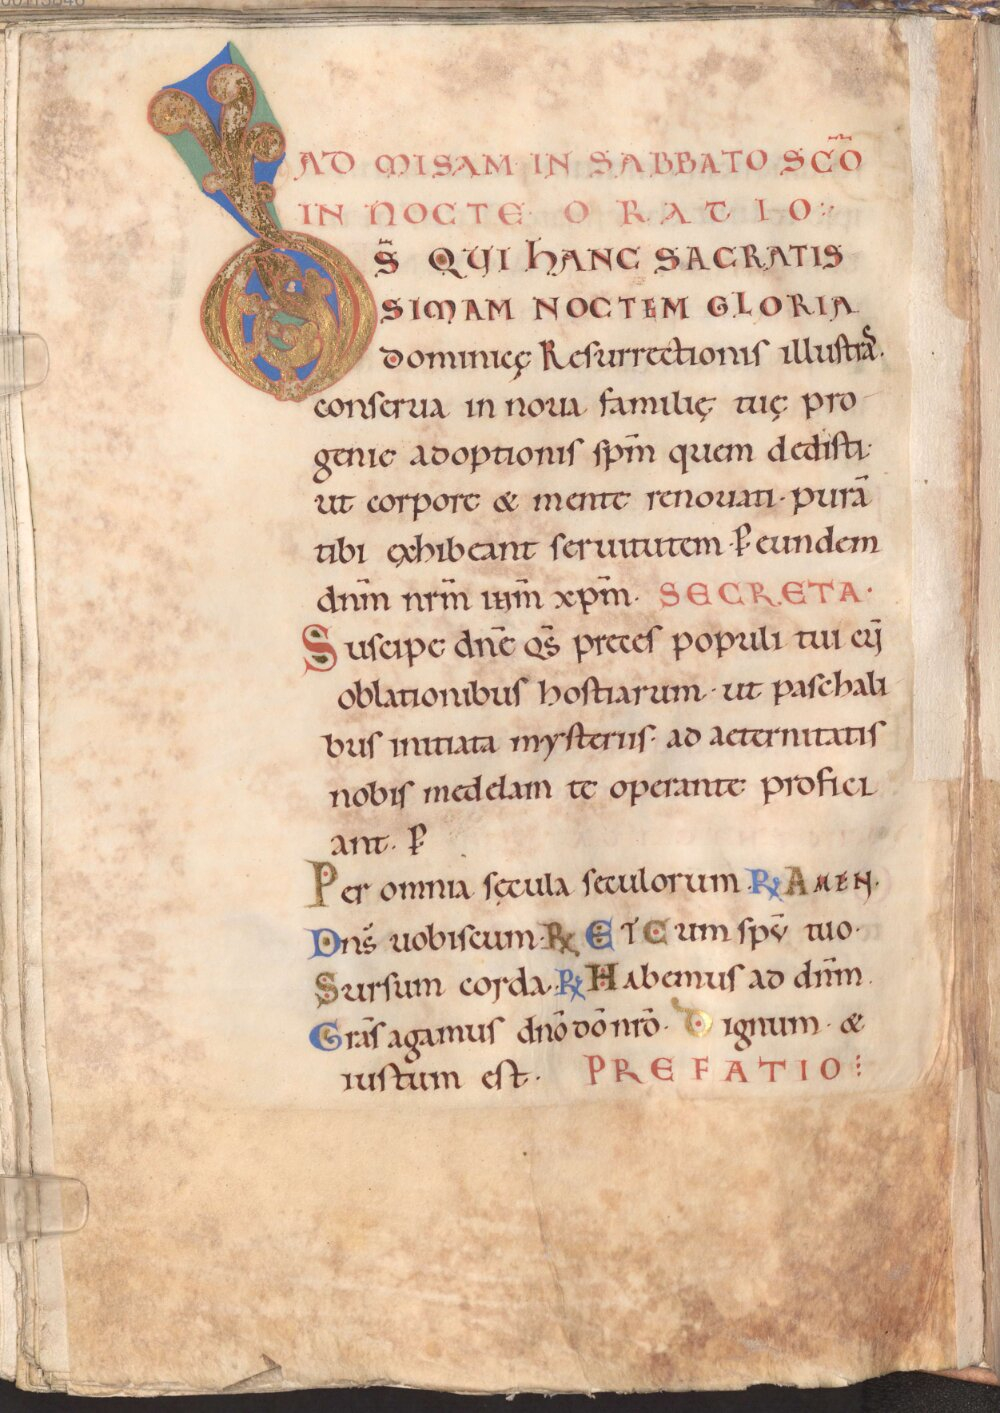 AD MISAM IN SABBATO SC̄O
IN NOCTE ORATIO:
DS̄ QUI HANC SACRATIS
SIMAM NOCTEM GLORIA
dominicę Resurrectionis illustras.
conserua in noua familię tuę pro
genie adoptionis sp̄m quem dedisti·
ut corpore & mente renouati· purā
tibi exhibeant seruitutem· ꝑ eundem
dn̄m nr̄m ih̄m xp̄m. SECRETA·
Suscipe dn̄e qs̄ preces populi tui cū
oblationibus hostiarum· ut paschali
bus initiata mysteriis· ad aeternitatis
nobis medelam te operante profici
ant. ꝑ
Per omnia sęcula seculorum ℞ AMEN·
Dn̄s uobiscum· ℞ ET Cum spū tuo·
Sursum corda. ℞ Habemus ad dn̄m.
Grās agamus dn̄o dō nr̄o. Dignum· &
iustum est. PREFATIO: